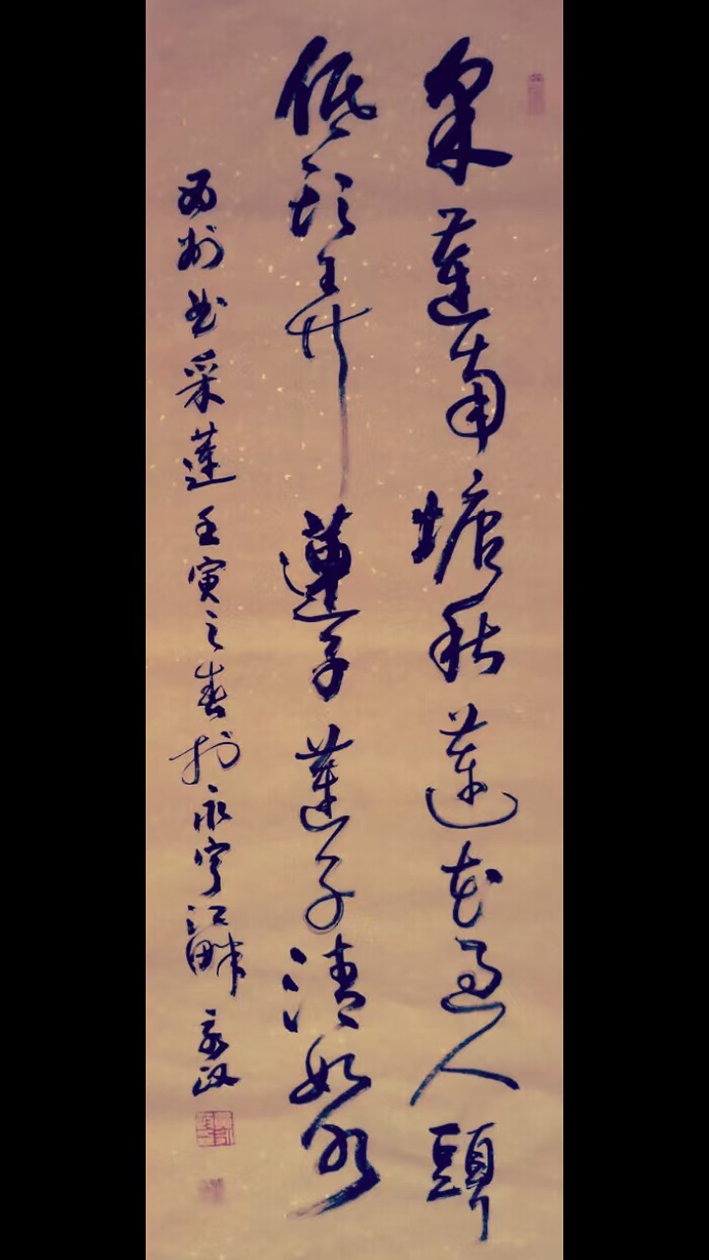 采蓮南塘秋蓮花過人頭
低頭弄蓮子蓮子清如水
西州曲采蓮壬寅之春於永寧江畔